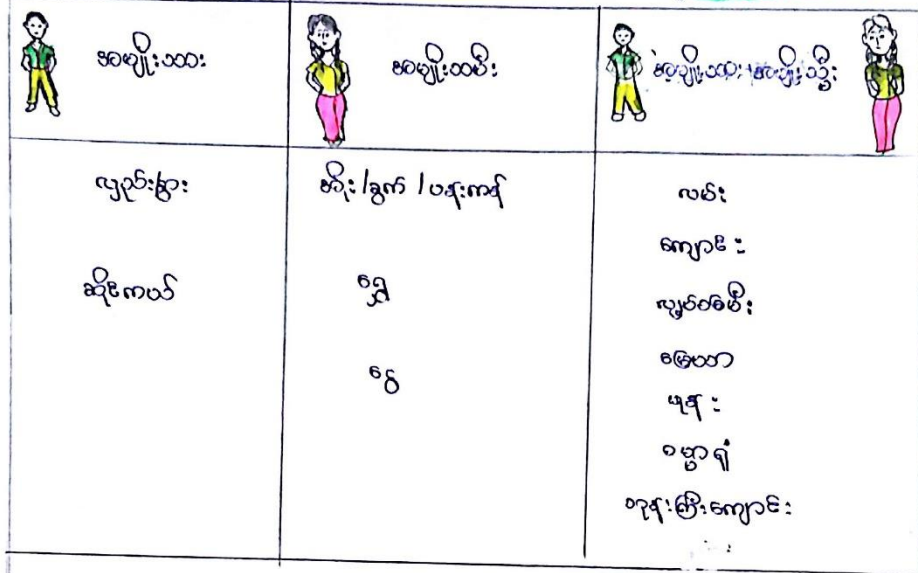 အမျိုးသား
အမျိုးသမီး
အမျိုးသား၊ အမျိုးသ္မီး
လှည်း/နွား
ဆိုင်ကယ်
အိုး/ခွက်/ပန်းကန်
ရွှေ
ငွေ
လမ်း
ကျောင်း
လျှပ်စစ်မီး
မြေယာ
ဖုန်း
ဓမ္မာရုံ
ဘုန်းကြီးကျောင်း